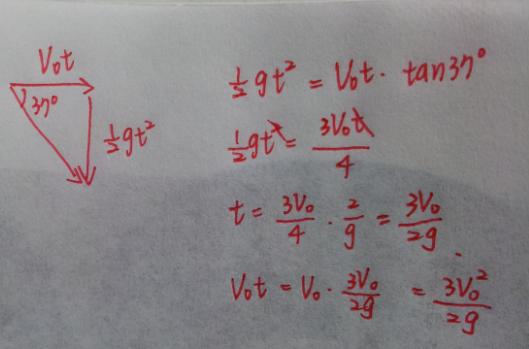 V₀t
37°
½gt²
½gt² = V₀t · tan37°
½gt² = 3V₀t/4
t = 3V₀/4 · 2/g = 3V₀/2g
V₀t = V₀ · 3V₀/2g = 3V₀²/2g